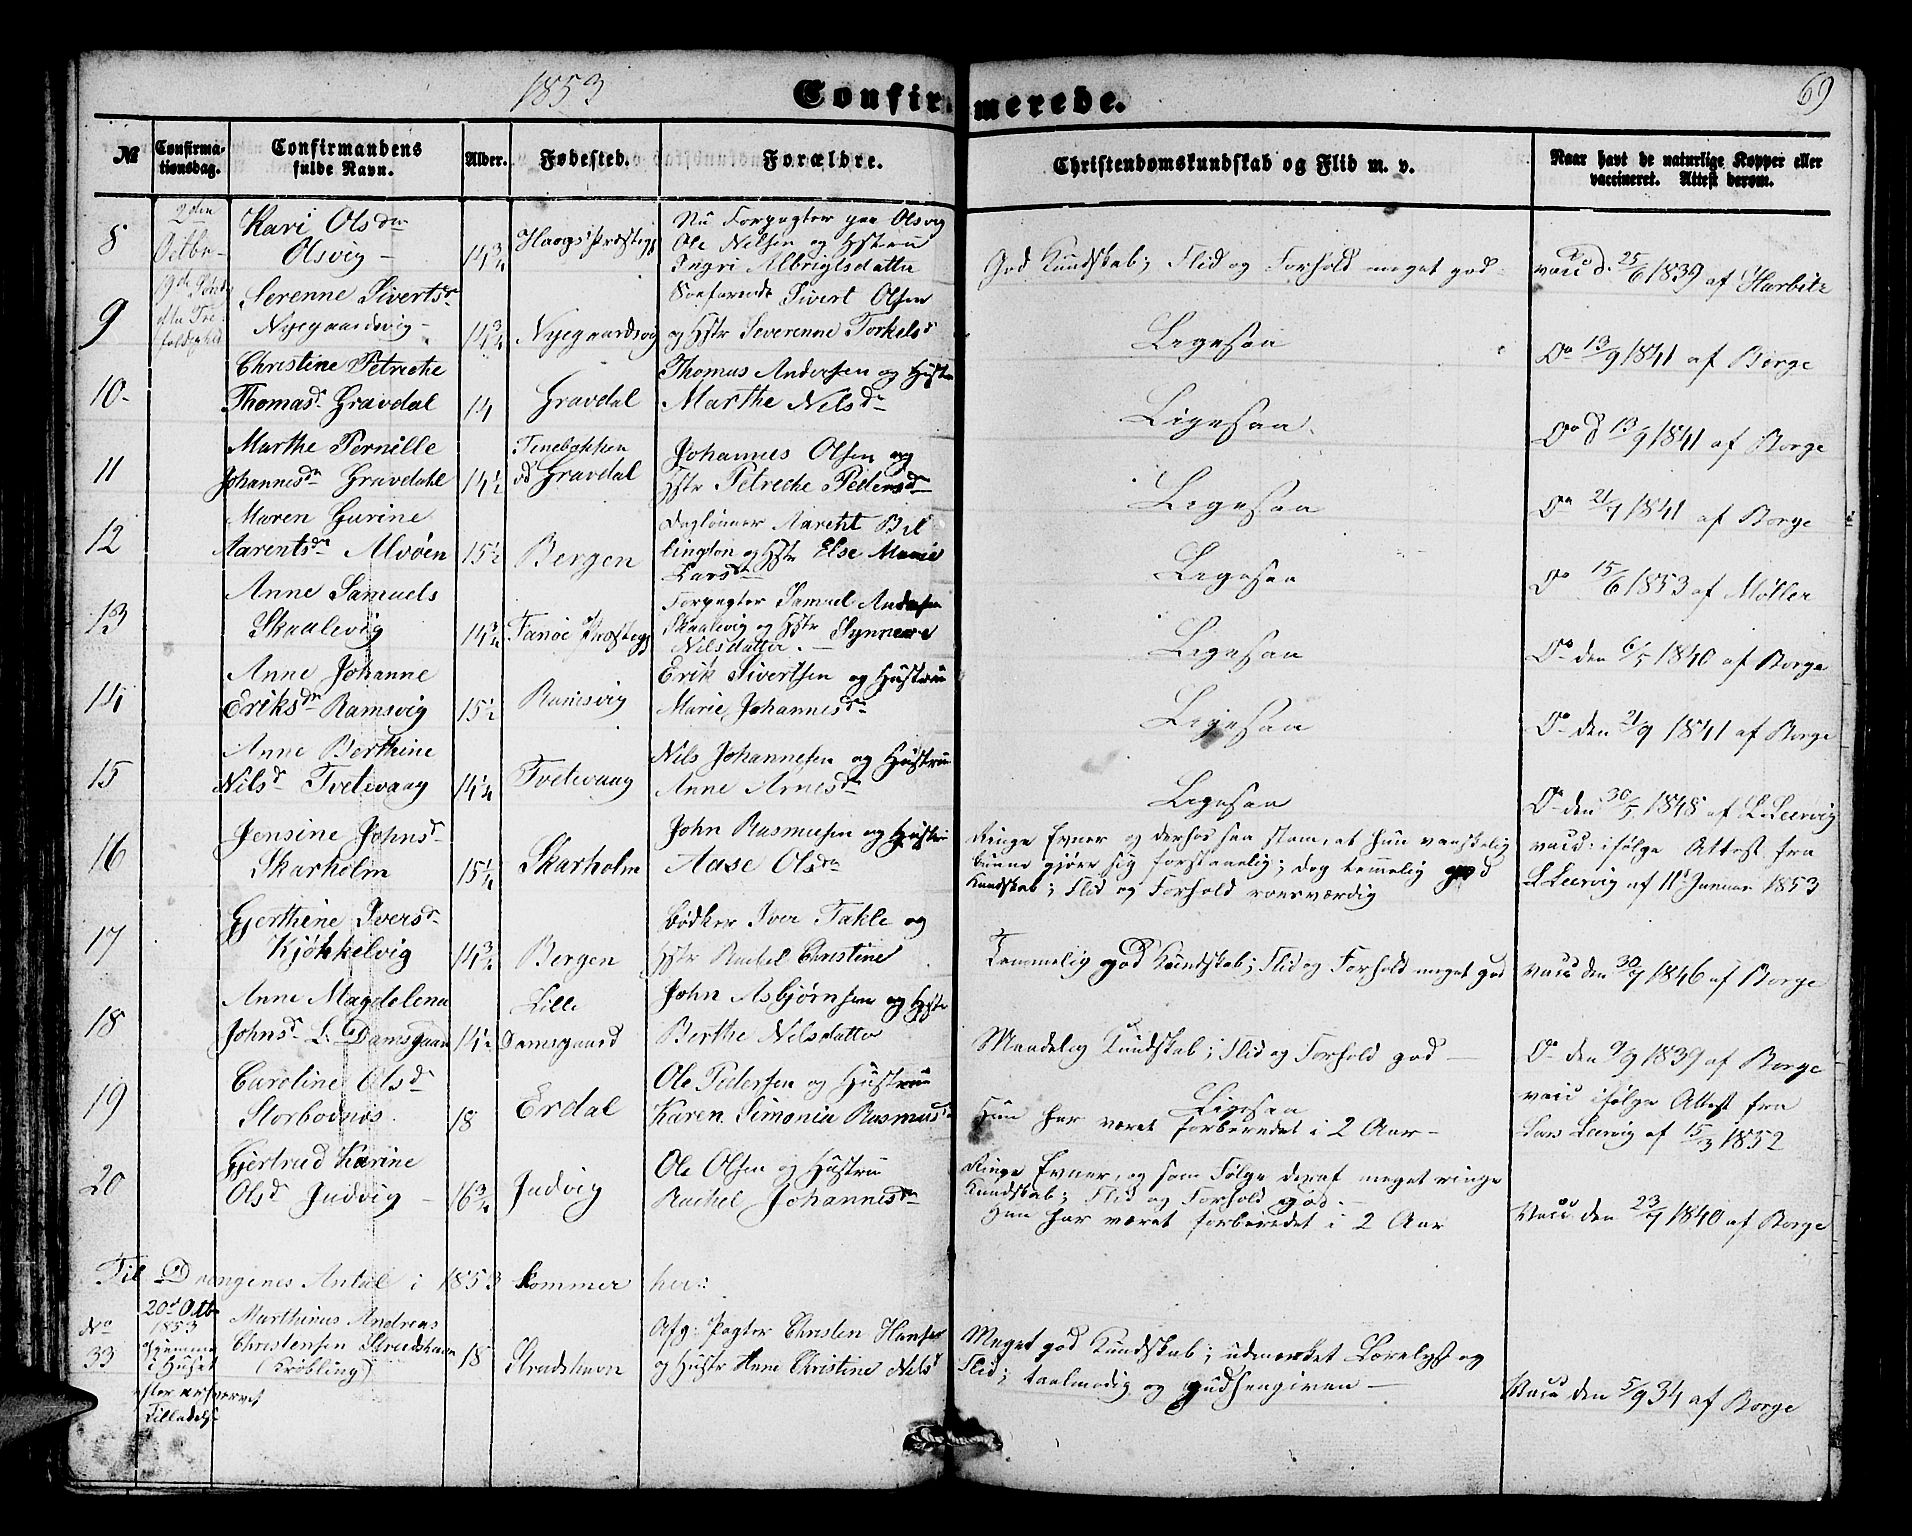 1853
Confirmerede.
69
№
Confirmationsdag.
Confirmandens fulde Navn.
Alder.
Fødested.
Forældre.
Christendomskundskab og Flid m. v.
Naar havt de naturlige Kopper eller vaccineret. Attest derom.
8 2den Octbr Kari Olsdtr Olsvig 14¾ Haugs Præstegj
Nu Forpagter paa Olsvig
Ole Nilsen og Hstru
Ingri Albrigtsdatter
God Kundskab; Flid og Forhold meget god
vacc d. 25/6 1839 af Harbitz
9 19de Sønd efter Trefoldighed Serenne Siverts dr Nygaardsvig 14¾ Nyegaardsvig
Søefarende Sivert Olsen
og Hstr Severenne Torkelsd
Ligesaa
Do 13/9 1841 af Borge
10 Christine Petreche Thomasd Gravdal 14 Gravdal
Thomas Andersen og Hustru
Marthe Nilsdr
Ligesaa
Do d 13/9 1841 af Borge
11 Marthe Pernille Johannesdr Gravdahl 14½ Gravdal
Johannes Olsen og
Hstr Petreche Pedersdr
Ligesaa
Do 21/9 1841 af Borge
12 Maren Gurine Aarentsdr Alvøen 15½ Bergen
Daglønner Aarent Billington og Hstr Else Marie
Larsdr
Ligesaa
Do 15/6 1853 af Møller
13 Anne Samuels Skaalevig 14¾ Fanøe Præstegj
Forpagter Samuel Andersen
Skaalevig og Hstr Synneve
Nilsdatter.
Ligesaa
Do den 6/5 1840 af Borge
14 Anne Johanne Eriksdr Ramsvig 15½ Ramsvig
Erik Sivertsen og Hustru
Marie Johannesdr
Ligesaa
Do den 21/9 1841 af Borge
15 Anne Berthine Nilsd Tvetevaag 14¼ Tvetevaag
Nils Johannesen og Hustru
Anne Arnesdr
Ligesaa
Do den 30/5 1848 af L. Leervig
16 Jensine Johnsd Skarholm 15¼ Skarholm
John Rasmusen og Hustru
Aase Olsdr
Ringe Evner og derhos saa stam, at hun vanskelig
kunne gjøre sig forstaaelig; dog temmelig god
Kundskab; Flid og Forhold roesværdig
vacc: ifølge Attest fra
L Leervig af 11t Januar 1853
17 Gjerthine Iversd Kjøkkelvig 14¾ Bergen
Bødker Iver Takle og
Hstr Rachel Christine
Temmelig god Kundskab; Flid og Forhold meget god
vacc den 30/7 1846 af Borge
18 Anne Magdelena Johnsd L. Damsgaard 14½ Lille Damsgaard
John Asbjørnsen og Hstr
Berthe Nilsdatter
Maadelig Kundskab; Flid og Forhold god
Do den 9/9 1839 af Borge
19 Caroline Olsd Storbodnes 18 Erdal
Ole Pedersen og Hustru
Karen Simonia Rasmusd
Ligesaa
Hun har været forberedet i 2 Aar
vacc ifølge Attest fra
Lars Leervig af 15/3 1852
20 Gjertrud Karine Olsd Judvig 16¾ Judvig
Ole Olsen og Hustru
Rachel Johannesdr
Ringe Evner, og som Følge deraf meget ringe
Kundskab; Flid og Forhold god
Hun har været forberedet i 2 Aar
Vacc. den 23/7 1840 af Borge
Til Drengenes Antal i 1853 kommer her:
No 33 20d Octb 1853 hjemme i Huset efter erhvervet Tilladelse
Marthinus Andreas
Christensen Stradshavn
(Krøbling)
18 Stradshavn
Afg: Pagter Christen Hansen
og Hustr Anne Christine Nilsd
Meget god Kundskab; udmærket Lærelyst og
Flid; taalmodig og gudhengiven
Vacc den 5/9 34 af Borge